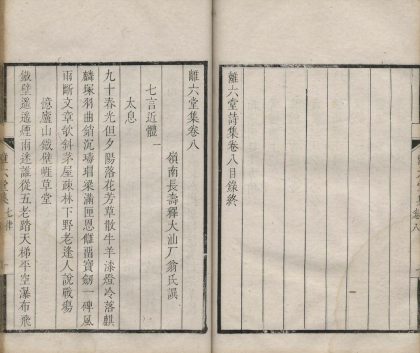 離六堂詩集卷八目錄終
離六堂集卷八
嶺南長壽釋大汕厂翁氏譔
七言近體一
太息
九十春光但夕陽落花芳草散牛羊漆燈冷落麒
麟塚羽曲銷沉瑇瑁梁滿匣恩讎畱寶劍一碑風
雨斷文章欹斜茅屋疎林下野老逢人說戰場
憶廬山鐵壁崕草堂
鐵壁遥遥煙雨迷誰從五老踏天梯半空瀑布飛
離六堂集 七律